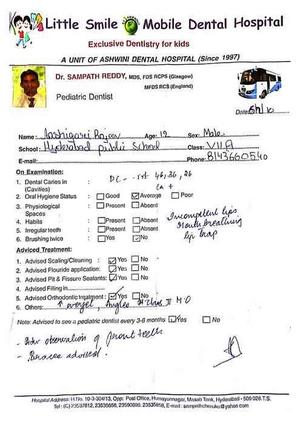 Little Smile Mobile Dental Hospital
Exclusive Dentistry for kids
A UNIT OF ASHWINI DENTAL HOSPITAL (Since 1997)
Dr. SAMPATH REDDY, MDS, FDS RCPS (Glasgow)
MFDS RCS (England)
Pediatric Dentist
Date:
Name: Rajeev Age: 12 Sex: Male
School: Hyderabad public School Class: VII A
E-mail: Phone: 8143660540
On Examination:
1. Dental Caries in (Cavities) : DC - 46, 36, 26
2. Oral Hygiene Status : Good Average Poor
3. Physiological Spaces : Present Absent
4. Habits : Present Absent
5. Irregular teeth : Present Absent
6. Brushing twice : Yes No
Incompetent lips
Mouth breathing
lip trap
Adviced Treatment:
1. Advised Scaling/Cleaning : Yes No
2. Advised Flouride application : Yes No
3. Advised Pit & Fissure Sealants : Yes No
4. Advised Filling in
5. Advised Orthodontic treatment : Yes No
6. Others: ↑ overjet, Angles class II M O
Note: Advised to see a pediatric dentist every 3-6 months Yes No
- observation of front teeth
- Braces advised.
Hospital Address: H.No. 10-3-304/13, Opp: Post Office, Humayunnagar, Masab Tank, Hyderabad - 500 028 T.S.